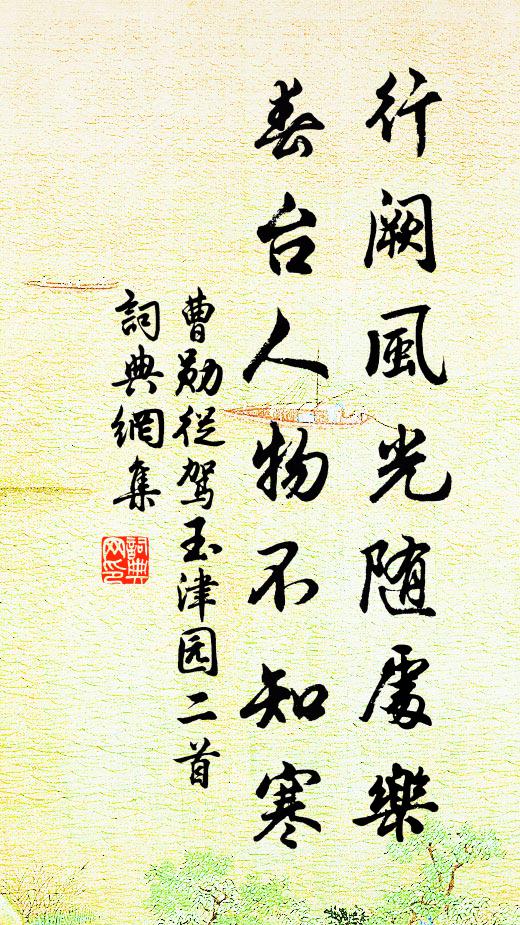 行阙風光随處樂
春台人物不知寒
曹勋從駕玉津园二首
詞典網集
詞典网印